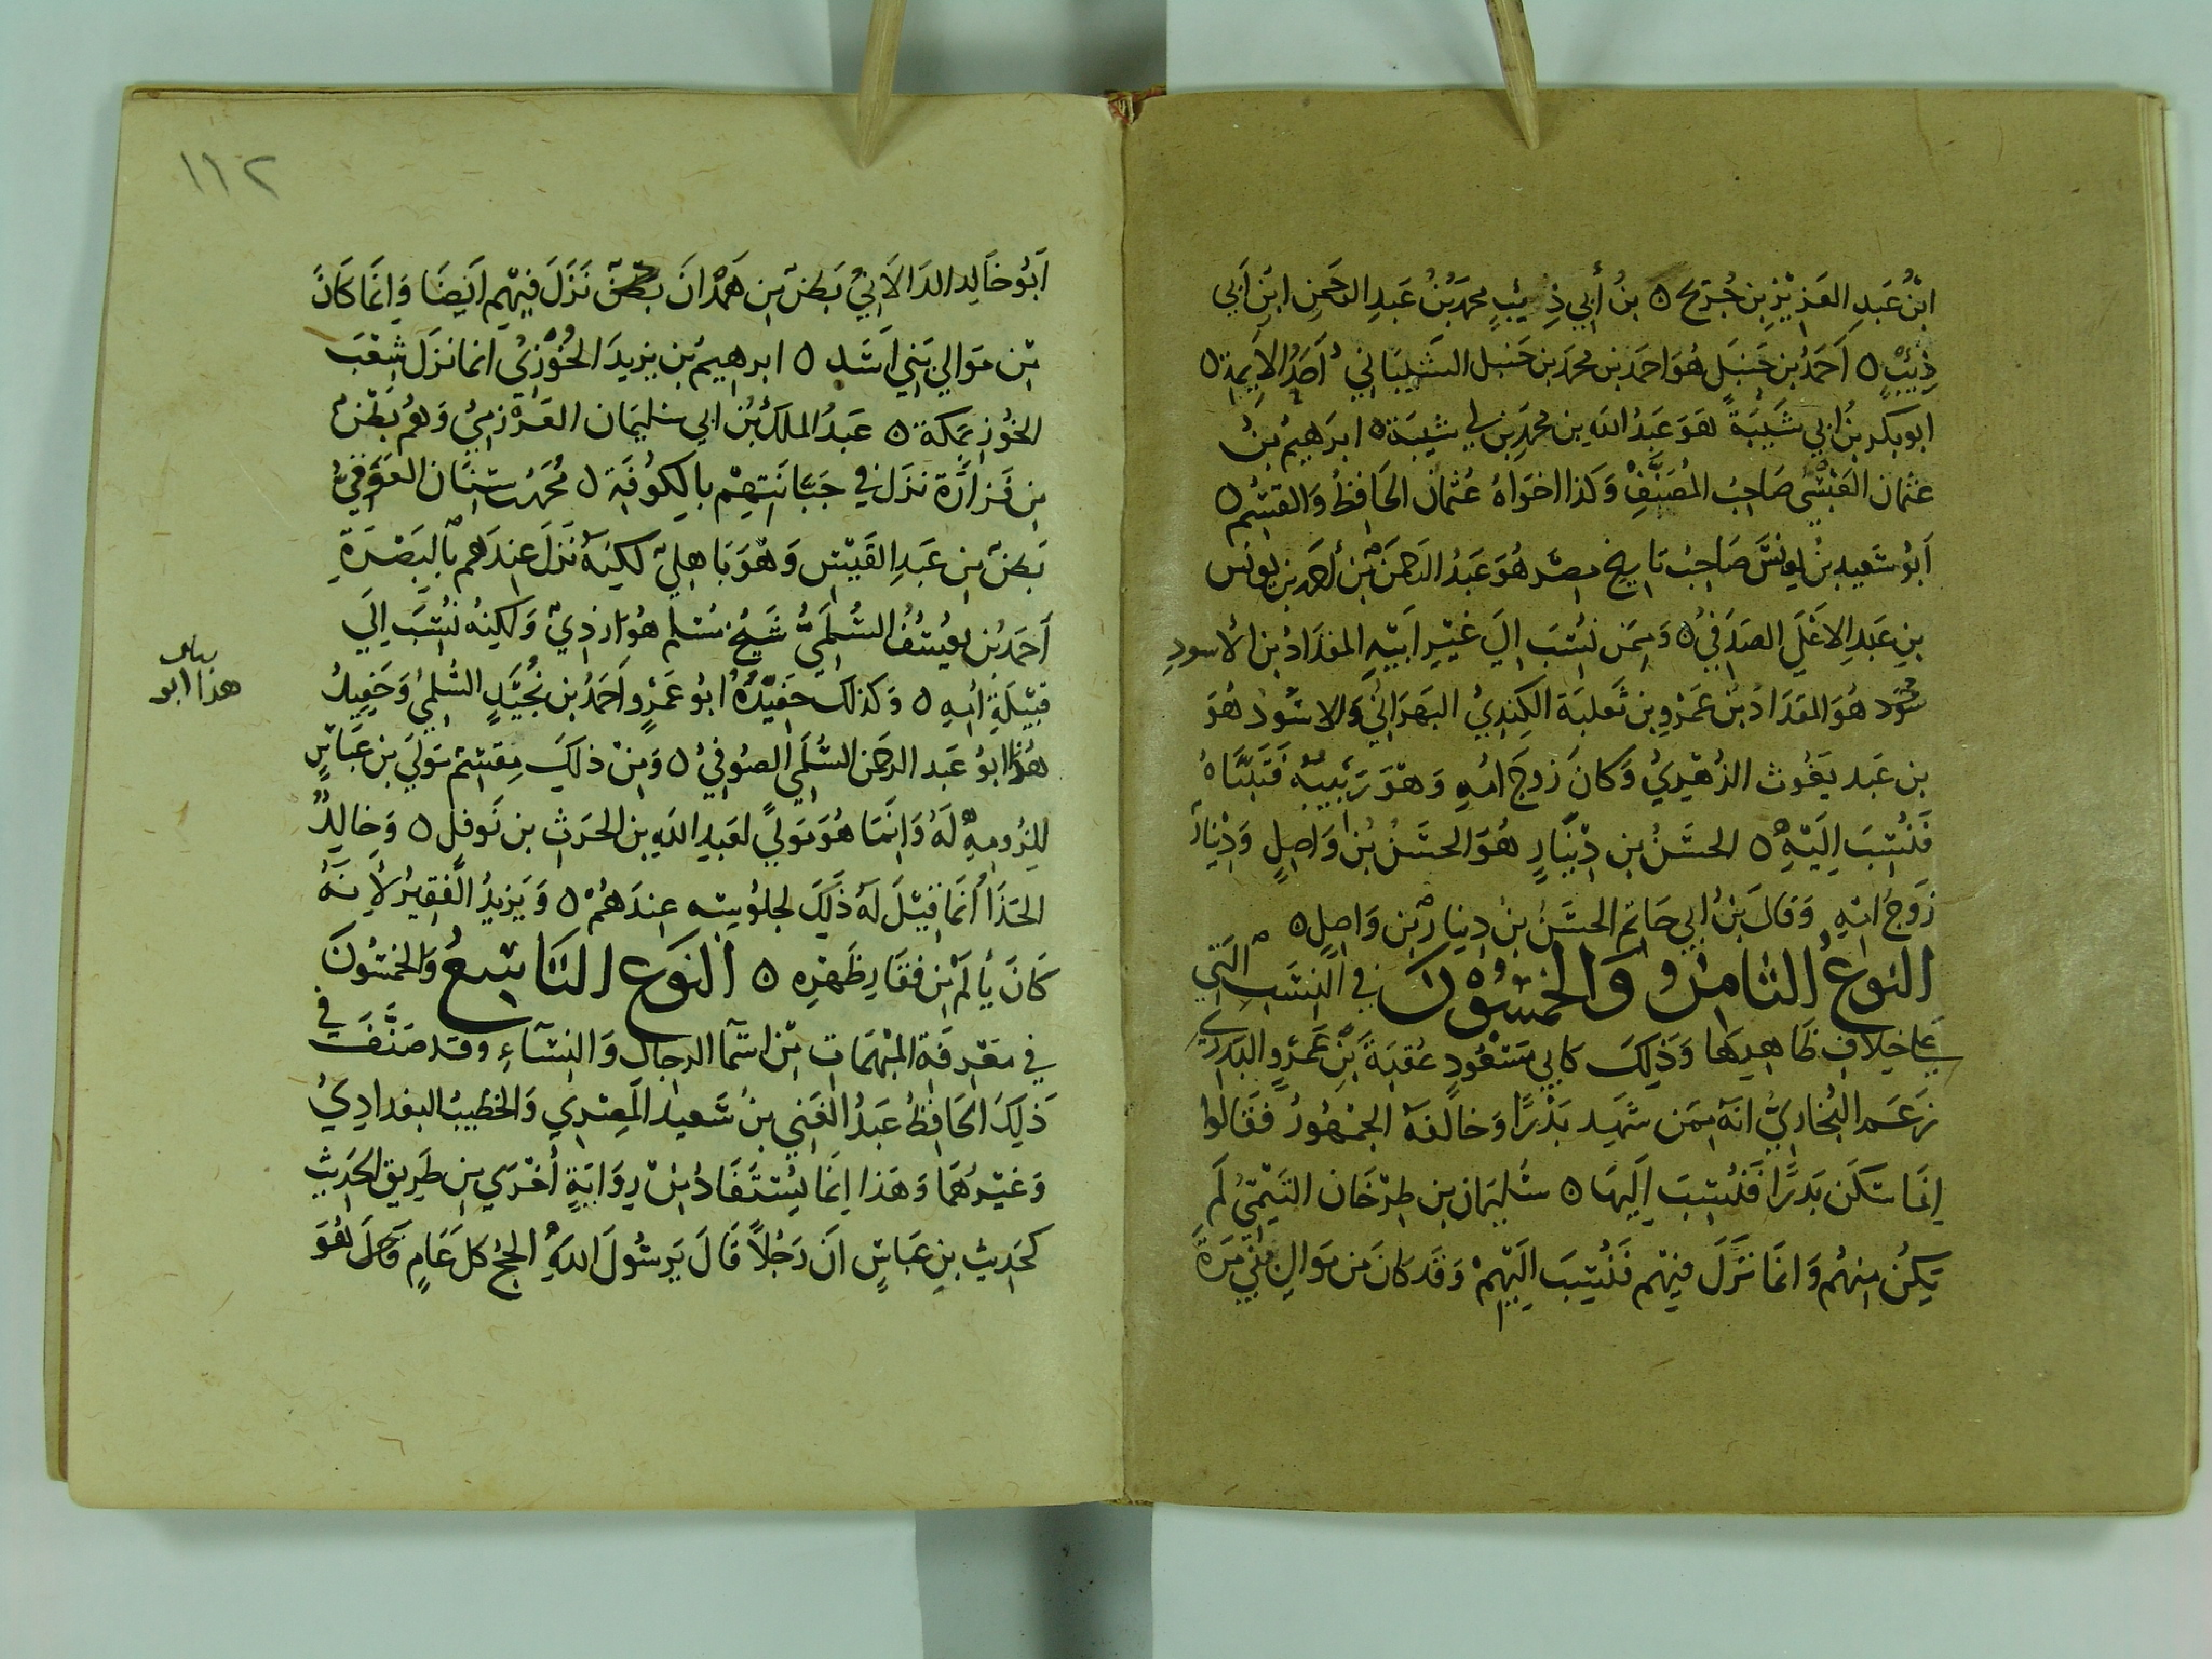 ابْنُ عَبدِ العَزِيْزِ بنِ جُرَيج ٥ بنُ أَبي ذِيبٍ محمدُ بْنُ عَبدِ الرَحمنِ ابنِ اَبي
ذِيْبٍ ٥ اَحمَدُ بن حَنبَل هُوَ احمَد بن محمد بن حَنبل الشَيْبَاني اَحَدُ الاَيِمة ٥
ابوبكر بنُ ابي شَيبَةَ هُوَ عَبدُ الله بن محمَدِ بن ابي شيبَة ٥ ابرَهِيمُ بنُ
عثمان العَبْسِيُّ صَاحِبُ المُصَنَّفِ وَكذا اخوَاهُ عُثمانُ الحَافِظُ وَالقسِم ٥
اَبُو سَعيد بنُ يونسَ صَاحِبُ تاريخ مصرَ هُوَ عَبدُ الرَحمَن بْن أحمد بن يونس
بنِ عَبدِ الاعْلَى الصَدَفيُ ٥ وَمِمَن نُسِبَ اِلَى غيْرِ اَبيْهِ المقدَادُ بن الأسودِ
هُوَ المقدَادُ بنُ عَمْرو بن ثَعلبَة الكِنديُ البَهرَانيُ وَالاسْوَدُ هُوَ
بن عَبد يَغُوث الزُهْرِيُ وَكانَ زوجَ امِهِ وَهْوَ رَبِيبُهُ فَتَبنَّاهُ
فَنُسِبَ اِلَيْهِ ٥ الحسَنُ بن دِيْنَارٍ هُوَ الحسَنُ بْنُ وَاصِلٍ وَدِيْنَارُ
زوجُ امِهِ وَقالَ بنُ ابي حَاتم الحسَنُ بنُ دِينار بْن وَاصِل ٥
النوعُ الثامنُ وَالخمسُوْنَ في النِسَبِ التي
علي خلافِ ظَاهِرهَا وَذَلِكَ كابي مَسْعُودٍ عُقبَةَ بْنِ عَمْرٍو البَدرِي
زعَم البُخاريُ انهُ ممَن شَهِد بَدْرًا وَخالفهُ الجمْهُورُ فقَالوا
اِنمَا سَكَن بَدرًا فَنُسِبَ اِلَيهَا ٥ سُلَيمَان بن طِرْخَان التَيْميُ لَم
يَكنُ مِنهُم وَانمَا نزَلَ فيْهِم فَنُسِبَ اِلَيْهِمْ وَقد كانَ مِن مَوَالي بني مُرَةَ
١١٢
اَبُو خَالِد الدَالاَنيُ بَطنٌ مِن هَمْدَانَ نَزَلَ فِيْهِم اَيضَا وَاِنمَا كَانَ
مِن مَوَالي بَني اَسَد ٥ ابرهِيمُ بن يزيدَ الخُوْزيُ انما نزَلَ شِعْبَ
الخوْزِ بمَكة ٥ عَبدُ الملكِ بْنُ ابي سُليمَان العَرْزَميُ وَهُم بَطْنٌ
مِن فَزارَة نزَلَ في جَبَّانَتِهِمْ بالكوُفَةِ ٥ محُمَدُ بنُ سِنَان العَوَقيُ
بَطنٌ مِن عَبدِ القَيْسِ وَهْوَ بَاهِليٌ لكِنهُ نَزَلَ عِندَهم بالبَصْرَةِ
اَحمَدُ بْن يُوسُفُ السُلَميُّ شَيْخُ مُسْلِم هُوَ ازدِيٌ وَلكِنهُ نُسِبَ اِلَى
قبِيْلَةِ اُمِهِ ٥ وَكذلكَ حَفِيْدُهُ ابُو عَمْرٍو اَحمَدُ بن نُجُيْدٍ السُلميُ وَحَفِيدُ
هذا ابُو عَبد الرَحمَن السُلَمي الصُوفيُ ٥ وَمِنْ ذلكَ مِقسَمٌ مَولي بن عَبَّاسٍ
للِزُومِهِ لَهُ وَاِنمَا هُوَ مَوليً لعَبدِ اللهِ بن الحَرَثِ بن نَوفلٍ ٥ وَخالِدٌ
الحَذَاُ انمَا قِيْلَ لهُ ذَلكَ لجلوُسِه عندَهُمْ ٥ وَيَزيدُ الفَقيرُ لأَنهُ
كانَ يَألَمُ مِن فقَارِ ظَهْرِهِ ٥ النوع التَاسِعُ وَالخمسُونَ
في مَعْرِفَةِ المبْهَمَاتِ مِن اسْمَا الرجالِ وَالنِسَاءِ وَقد صَنَّفَ في
ذَلِكَ الحَافِظُ عَبدُ الغَني بنُ سَعِيد المِصْرِي وَالخطيبُ البغدادِيُ
وَغَيْرُهُمَا وَهَذا اِنمَا يُسْتَفَادُ مِنْ رِوَايَةٍ أُخْرَي مِن طَرِيق الحَدِيثِ
كحَدِيث بنِ عبَاسٍ انَ رَجُلاً قالَ يَرسُولَ اللهِ الحجُ كل عَامٍ
هذا ابو